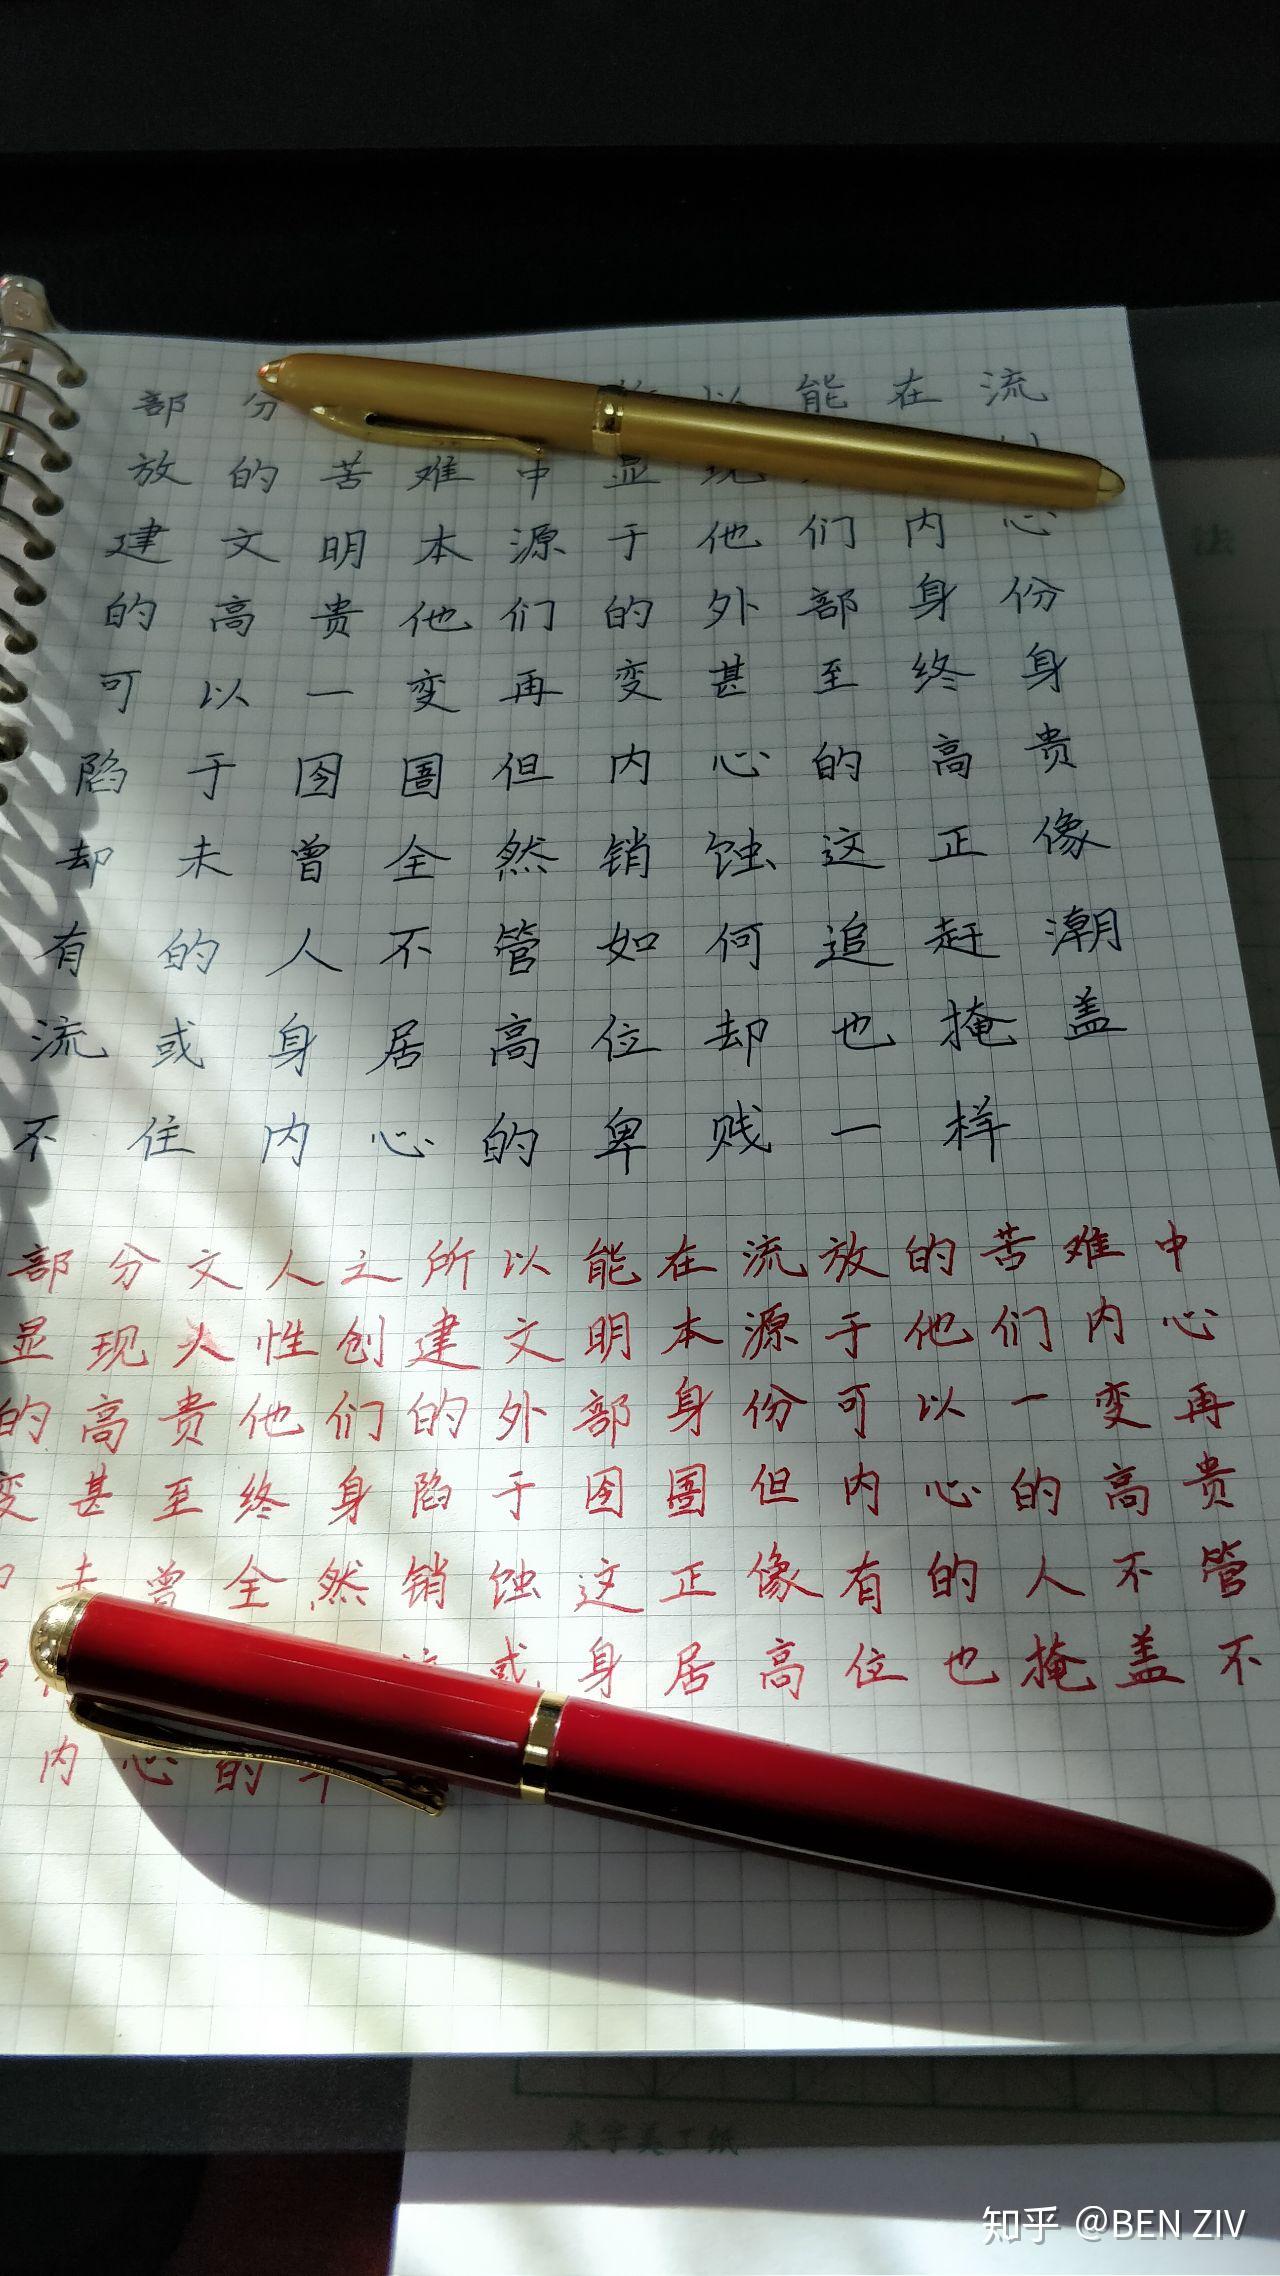 部分 以能在流
放的苦难中显现
建文明本源于他们内心
的高贵他们的外部身份
可以一变再变甚至终身
陷于囹圄但内心的高贵
却未曾全然销蚀这正像
有的人不管如何追赶潮
流或身居高位却也掩盖
不住内心的卑贱一样
部分文人之所以能在流放的苦难中
显现人性创建文明本源于他们内心
的高贵他们的外部身份可以一变再
变甚至终身陷于囹圄但内心的高贵
未曾全然销蚀这正像有的人不管
或身居高位也掩盖不
内心的
法
米字美工纸
知乎 @BEN ZIV